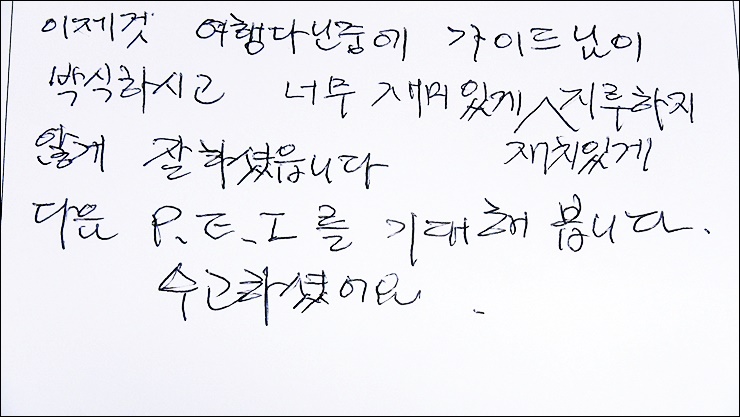 이제껏 여행다닌중에 가이드님이
박식하시고 너무 재미있게 ∧ 지루하지
않게 잘하셨읍니다 재치있게
다음 P.E.I를 기대해 봅니다.
수고하셨어요.